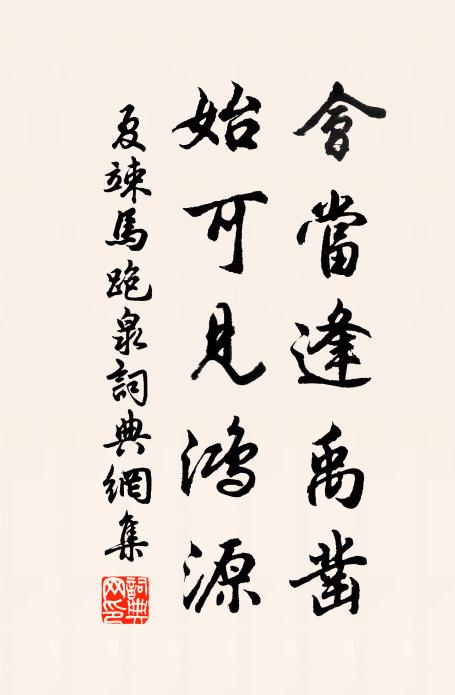 會當逢禹鑿
始可見鴻源
夏竦馬跑泉詞典網集
詞典網印